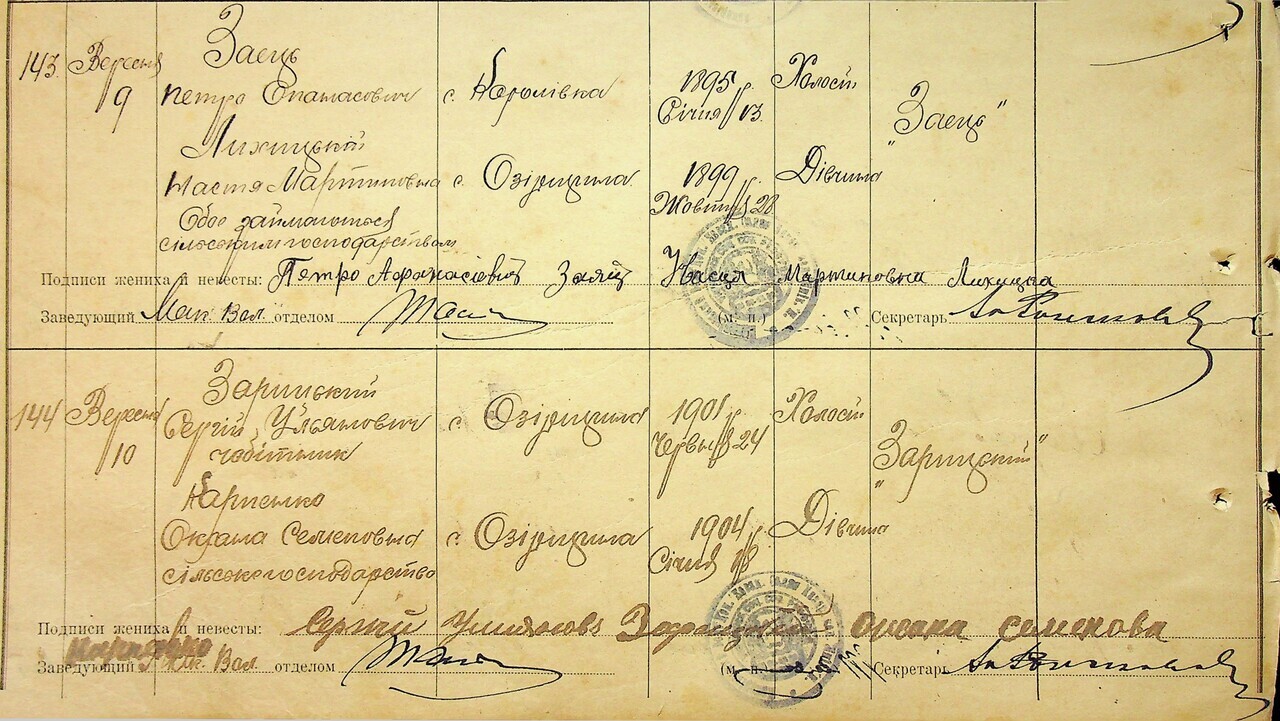 143. Вересня 9
Заєць
Петро Опанасович
с. Королівка
1895 р.
Січня 13.
Холостий
„Заєць"
Лихицький
Настя Мартиновна
с. Озірщина
1899 р.
Жовтня 28
Дівчина
Обоє займаються
сільським господарством
Подписи жениха и невесты: Петро Афанасієвич Заяц Настя Мартиновна Лихицка
Заведующий Мак. Вол. отделом
(м. п.) Секретарь
144 Вересня 10
Зарицький
Сергій Ульянович
чобітник
с. Озірщина
1901 р.
Червня 24
Холостий
„Зарицький"
Карпенко
Оксана Семеновна
сільське господарство
с. Озірщина
1904 р.
Січня 18
Дівчина
Подписи жениха и невесты: Сергий Зарицький Оксана Семенова
Заведующий Мак. Вол. отделом
(м. п.) Секретарь